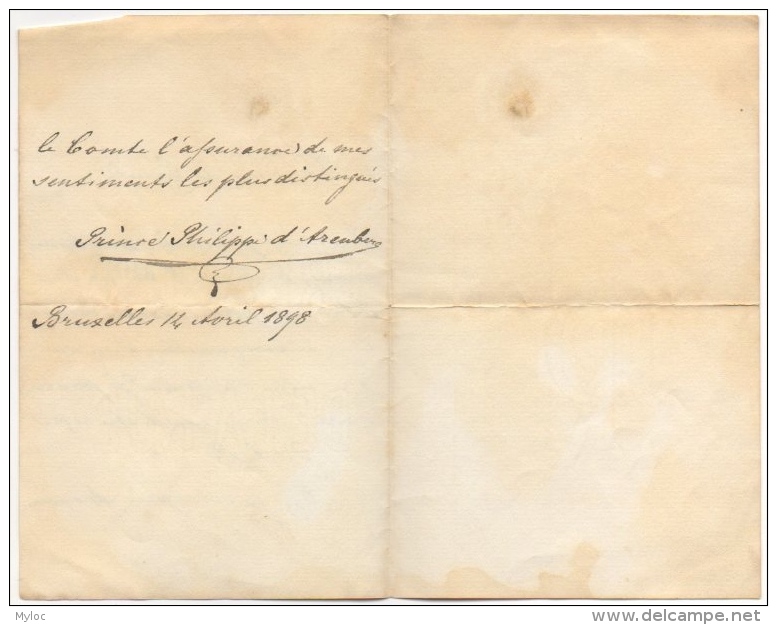 le Comte l'assurance de mes
sentiments les plus distingués
Prince Philippe d'Arenberg
Bruxelles 12 Avril 1898
Myloc
delcampe.net